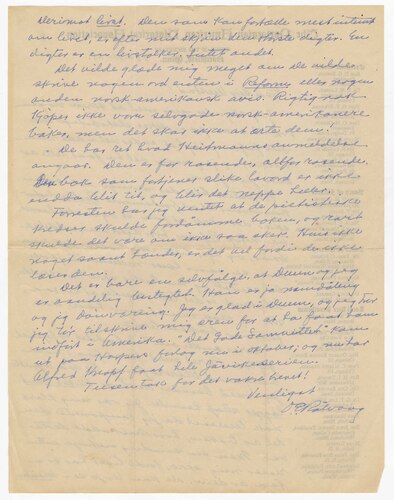 Derimot livet. Den som kan fortælle mest intimt
om livet, er efter mit skjøn den største digter. En
digter er en livstolker, intet andet.
Det vilde glæde mig meget om De vilde
skrive nogen ord enten i Reform eller nogen
anden norsk-amerikansk avis. Rigtig nok
kjøpes ikke vore selvgode norsk-amerikanere
bøker, men det skal ikke at ærte dem!
De har ret hvad Heitmanns anmeldelse
angaar. Den er for rosende, altfor rosende.
bok som fortjener slike lovord er ikke
endda blit til, og blir det neppe heller.
Forresten har jeg ventet at de pietistiske
skulde fordømme boken, og rart
skulde det være om ikke saa sker. Hvis ikke
noget saant hænder, er det vel fordi de ikke
læser den.
Det er bare en selvfølge at Duun og jeg
er aandelig beslegtet. Han er jo namdaling
og jeg Dønnværing. Jeg er glad i Duun, og jeg tør
jeg tør tilskrive mig æren for at ha faat ham
indført i Amerika. "Det Gode Samvittet" kom
ut paa Harpers forlag nu i oktober; og nu har
Alfred Knopf faat hele Juvikeserien.
Tusen tak for det vakre brevet!
Venligst
O E Rølvaag